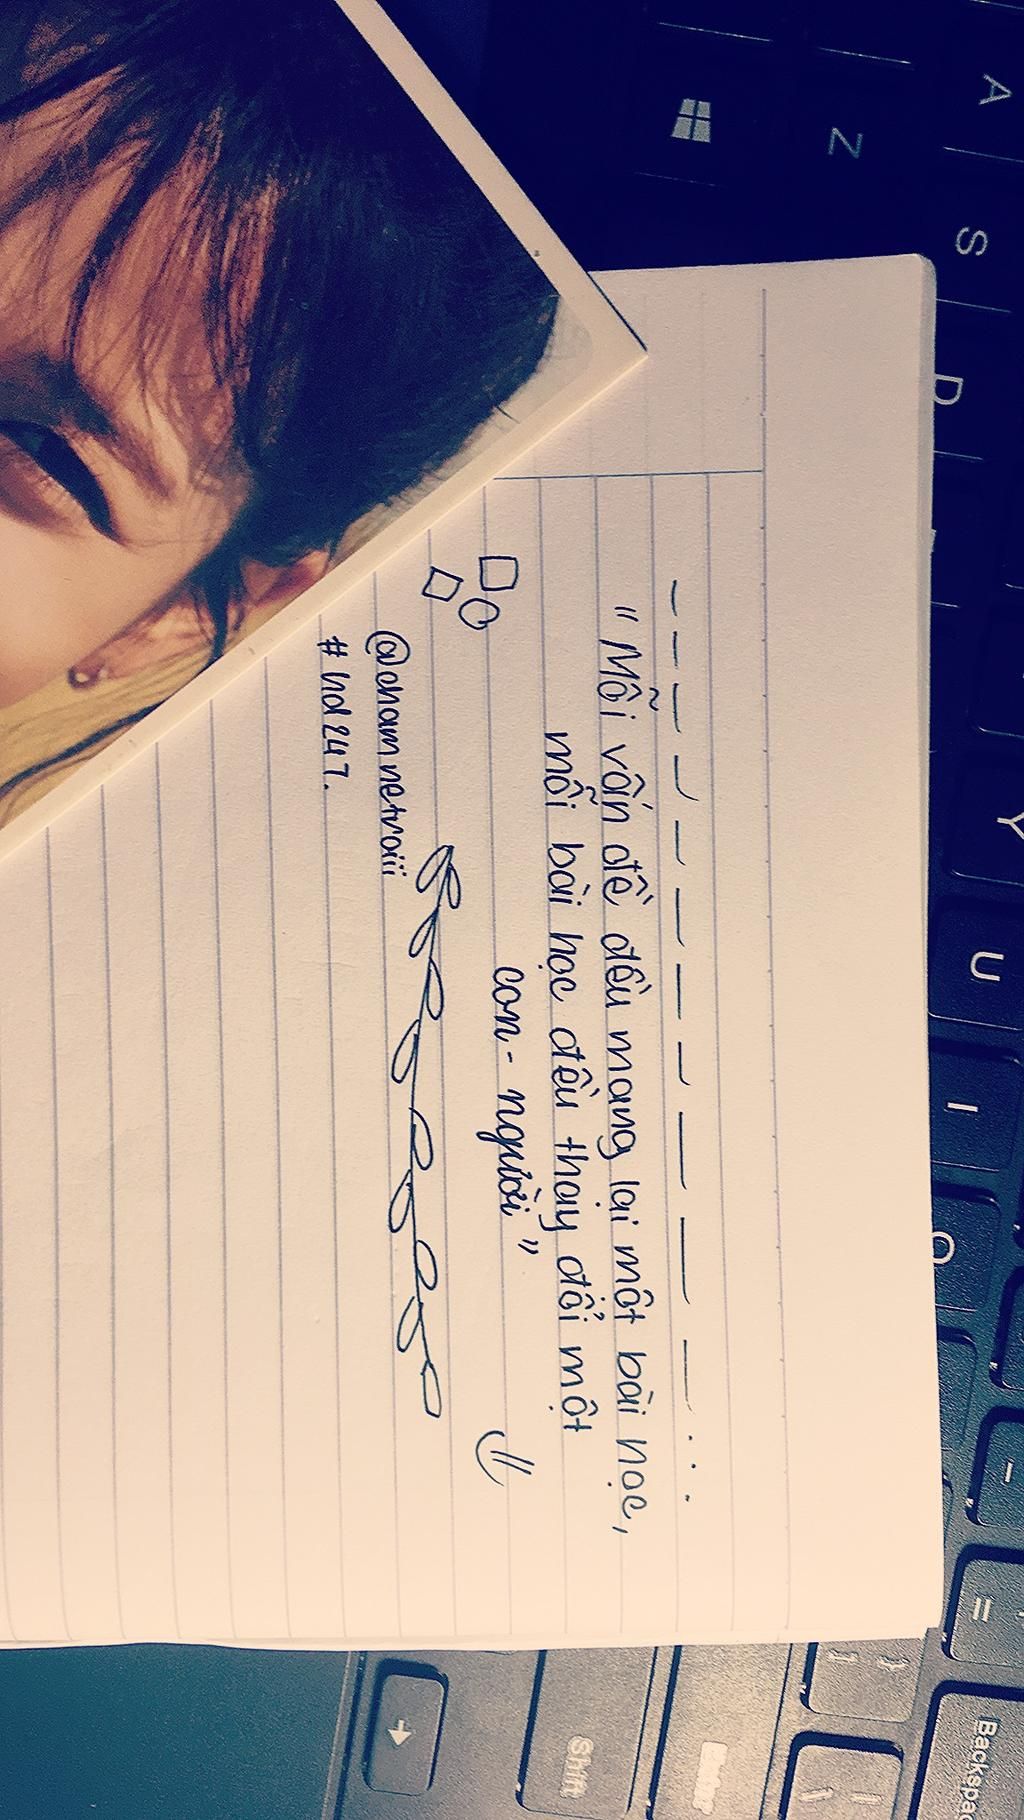 "Mỗi vấn đề đều mang lại một bài học,
mỗi bài học đều thay đổi một
con - người"
@chamnetvoiii
#hd247.
A
Z
S
D
Y
U
I
O
-
=
}
]
Backspa
Shift